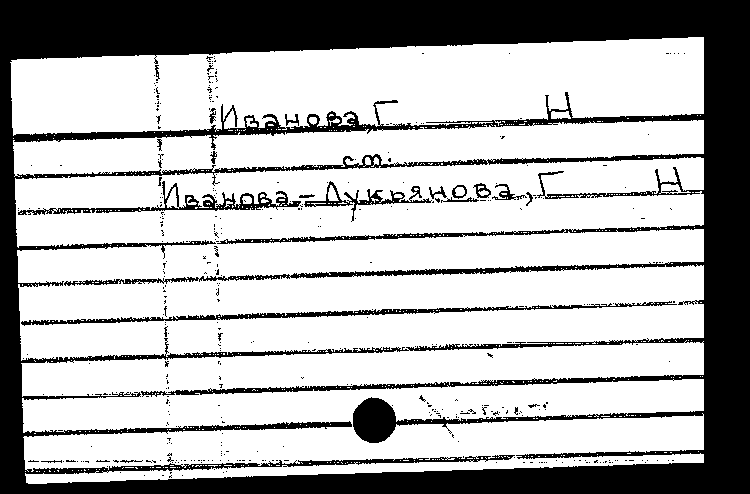 Иванова, Г Н
см.
Иванова-Лукьянова, Г Н